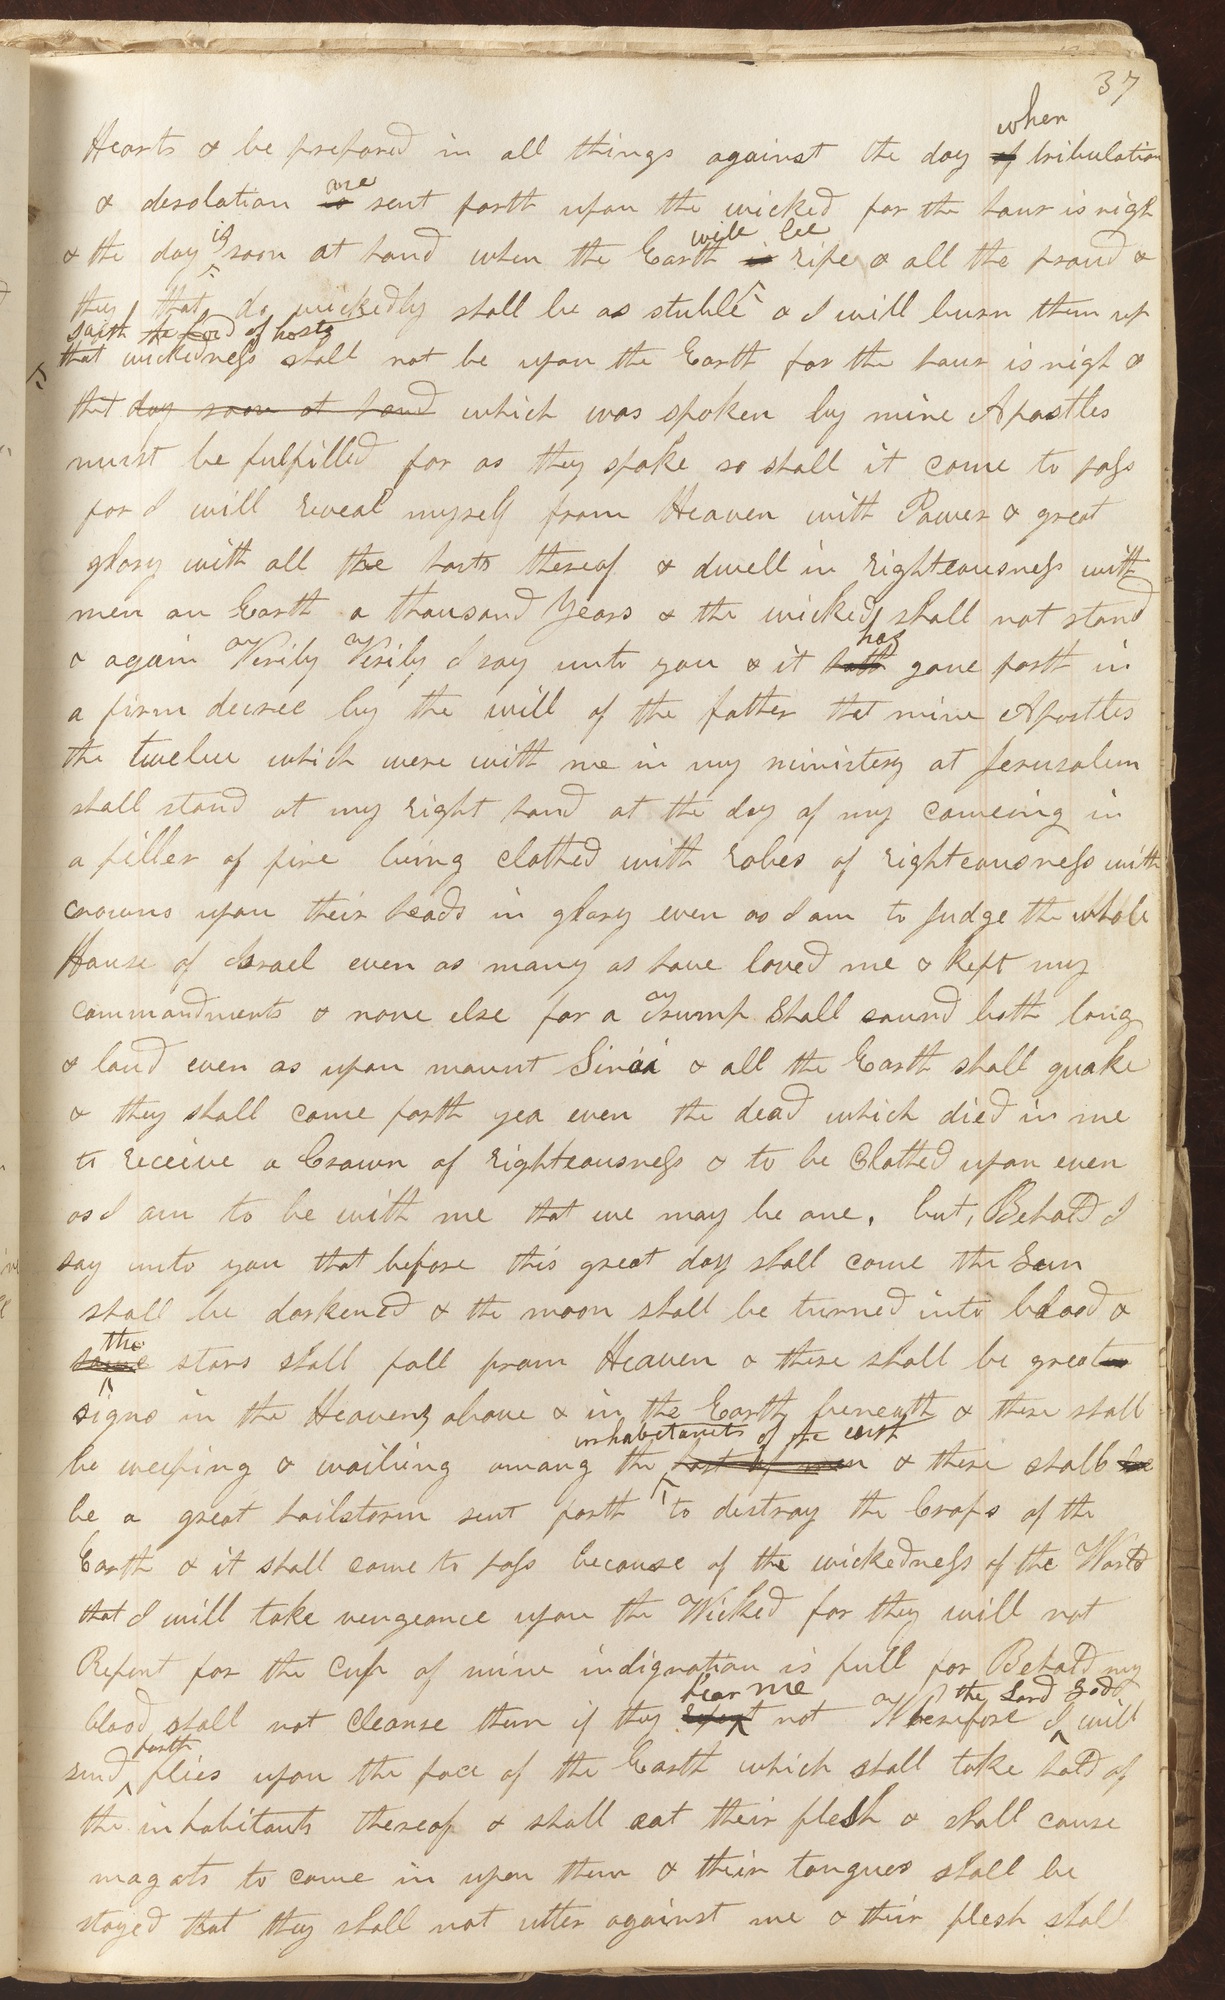 37
when
Hearts & be prepared in all things against the day of tribulation
are
& desolation is sent forth upon the wicked for the hour is nigh
is will be
& the day soon at hand when the Earth is ripe & all the proud &
they that do wickedly shall be as stuble & I will burn them up
saith the Lord of hosts
that wickedness shall not be upon the Earth for the hour is nigh &
that day soon at hand which was spoken by mine Apostles
must be fulfilled for as they spoke so shall it come to pass
for I will reveal myself from Heaven with Power & great
glory with all the hosts thereof & dwell in righteousness with
men on Earth a thousand Years & the wicked shall not stand
has
& again Verily Verily I say unto you & it hath gone forth in
a firm decree by the will of the father that mine Apostles
the twelve which were with me in my ministery at Jerusalem
shall stand at my right hand at the day of my comeing in
a piller of fire being clothed with robes of righteousness with
crowns upon their heads in glory even as I am to Judge the whole
House of Israel even as many as have loved me & kept my
commandments & none else for a Trump Shall sound both long
& loud even as upon mount Sinai & all the Earth shall quake
& they shall come forth yea even the dead which died in me
to receive a Crown of righteousness & to be Clothed upon even
as I am to be with me that we may be one. but, Behold I
say unto you that before this great day shall come the Sun
shall be darkened & the moon shall be turned into blood &
the
some stars shall fall from Heaven & there shall be greater
signs in the Heavens above & in the Earth beneath & there shall
inhabetants of the earth
be weeping & wailing among the host of men & there shall be
be a great hailstorm sent forth to destroy the Crops of the
Earth & it shall come to pass because of the wickedness of the World
that I will take vengeance upon the Wicked for they will not
Repent for the cup of mine indignation is full for Behold my
hear me the Lord God
blood shall not cleanse them if they repent not Wherefore I will
forth
send flies upon the face of the Earth which shall take hold of
the inhabitants thereof & shall eat their flesh & shall cause
magots to come in upon them & their tongues shall be
stayed that they shall not utter against me & their flesh shall